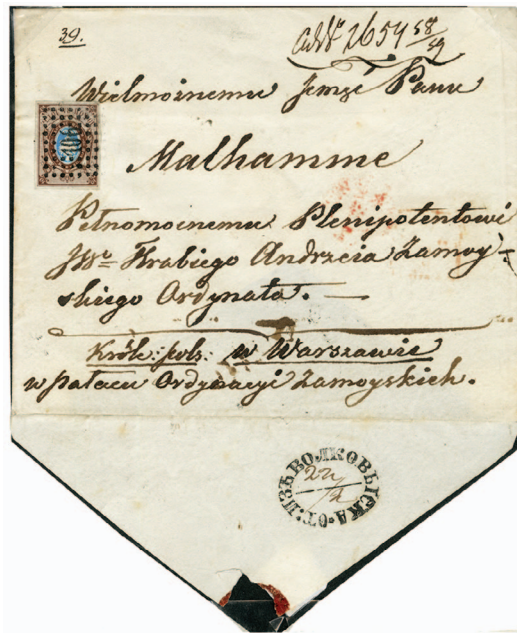 39.
2654 58/59
Wielmożnemu Jmrze Panu
406
Malhamme
Pełnomocnemu Plenipotentowi
JWo Hrabiego Andrzeia Zamoy-
skiego Ordynata. —
Król: pols: w Warszawie
w pałacu Ordynacyi Zamoyskich.
ОТ: ИЗЪ ВОЛКОВЫСКА
22/2